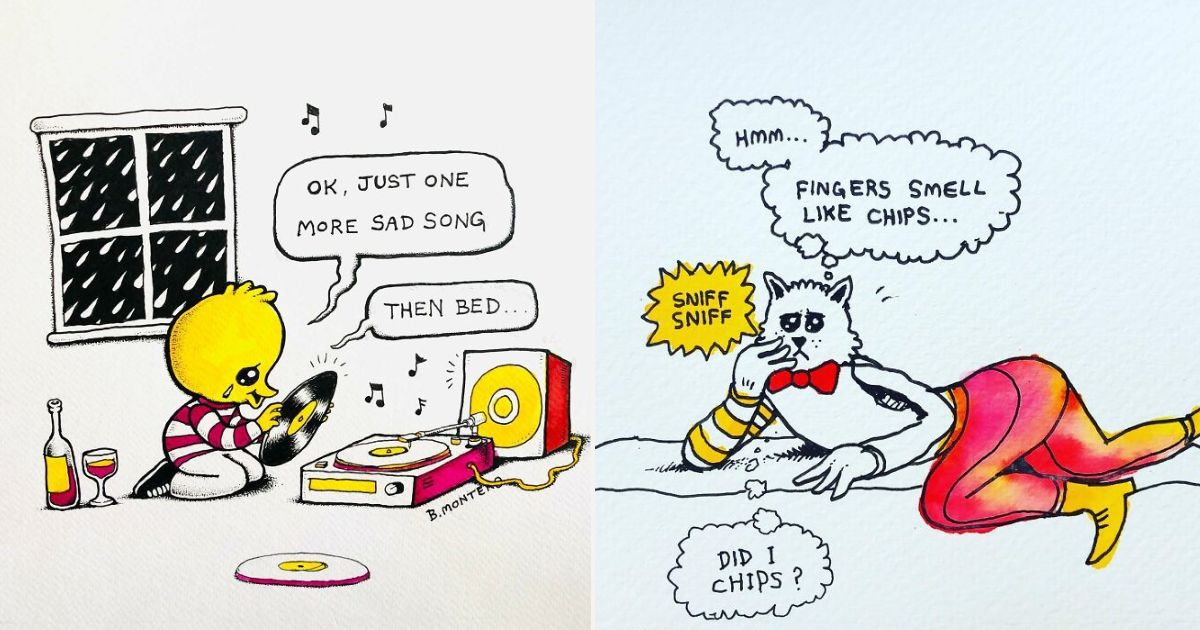 OK, JUST ONE
MORE SAD SONG
THEN BED...
B. MONTERO
HMM...
FINGERS SMELL
LIKE CHIPS...
SNIFF
SNIFF
DID I
CHIPS?